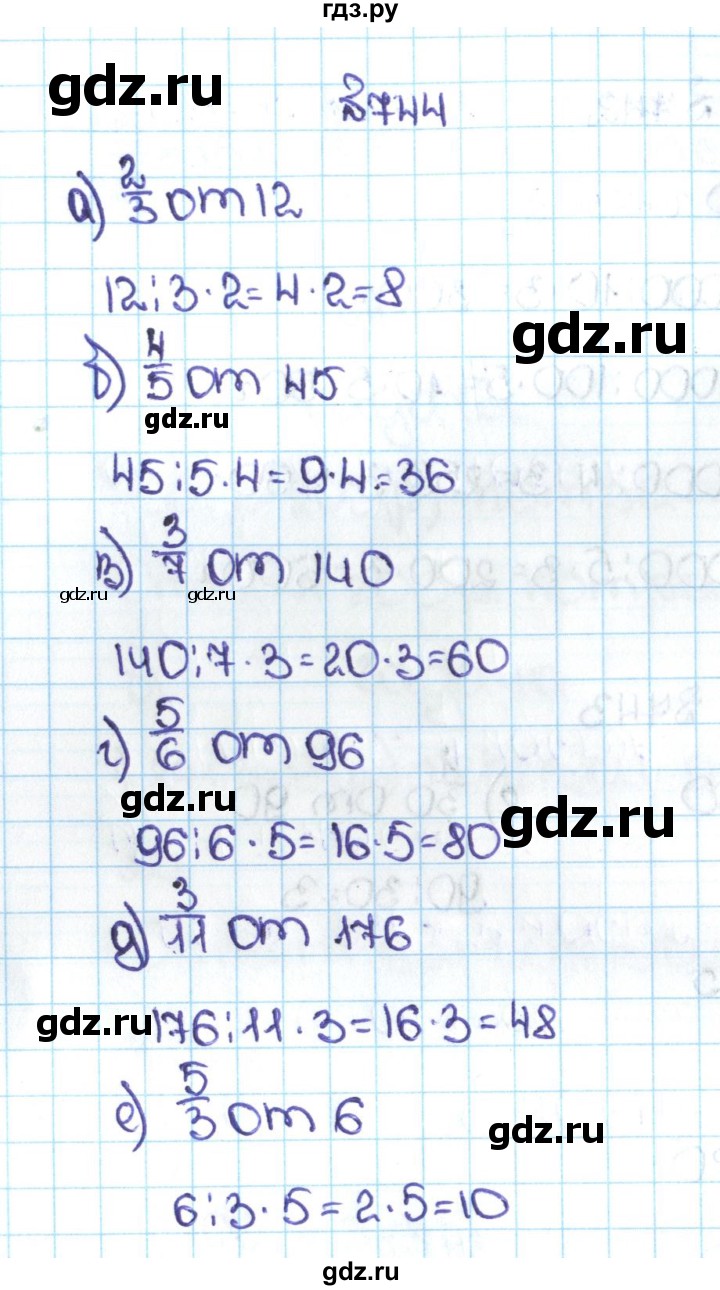 гдз.ру
gdz.ru
№744
а) 2/3 от 12
12:3·2=4·2=8
gdz.ru
б) 4/5 от 45
gdz.ru
45:5·4=9·4=36
в) 3/7 от 140
gdz.ru gdz.ru
140:7·3=20·3=60
г) 5/6 от 96
gdz.ru gdz.ru
96:6·5=16·5=80
д) 3/11 от 176
gdz.ru
176:11·3=16·3=48
е) 5/3 от 6
gdz.ru
6:3·5=2·5=10
gdz.ru